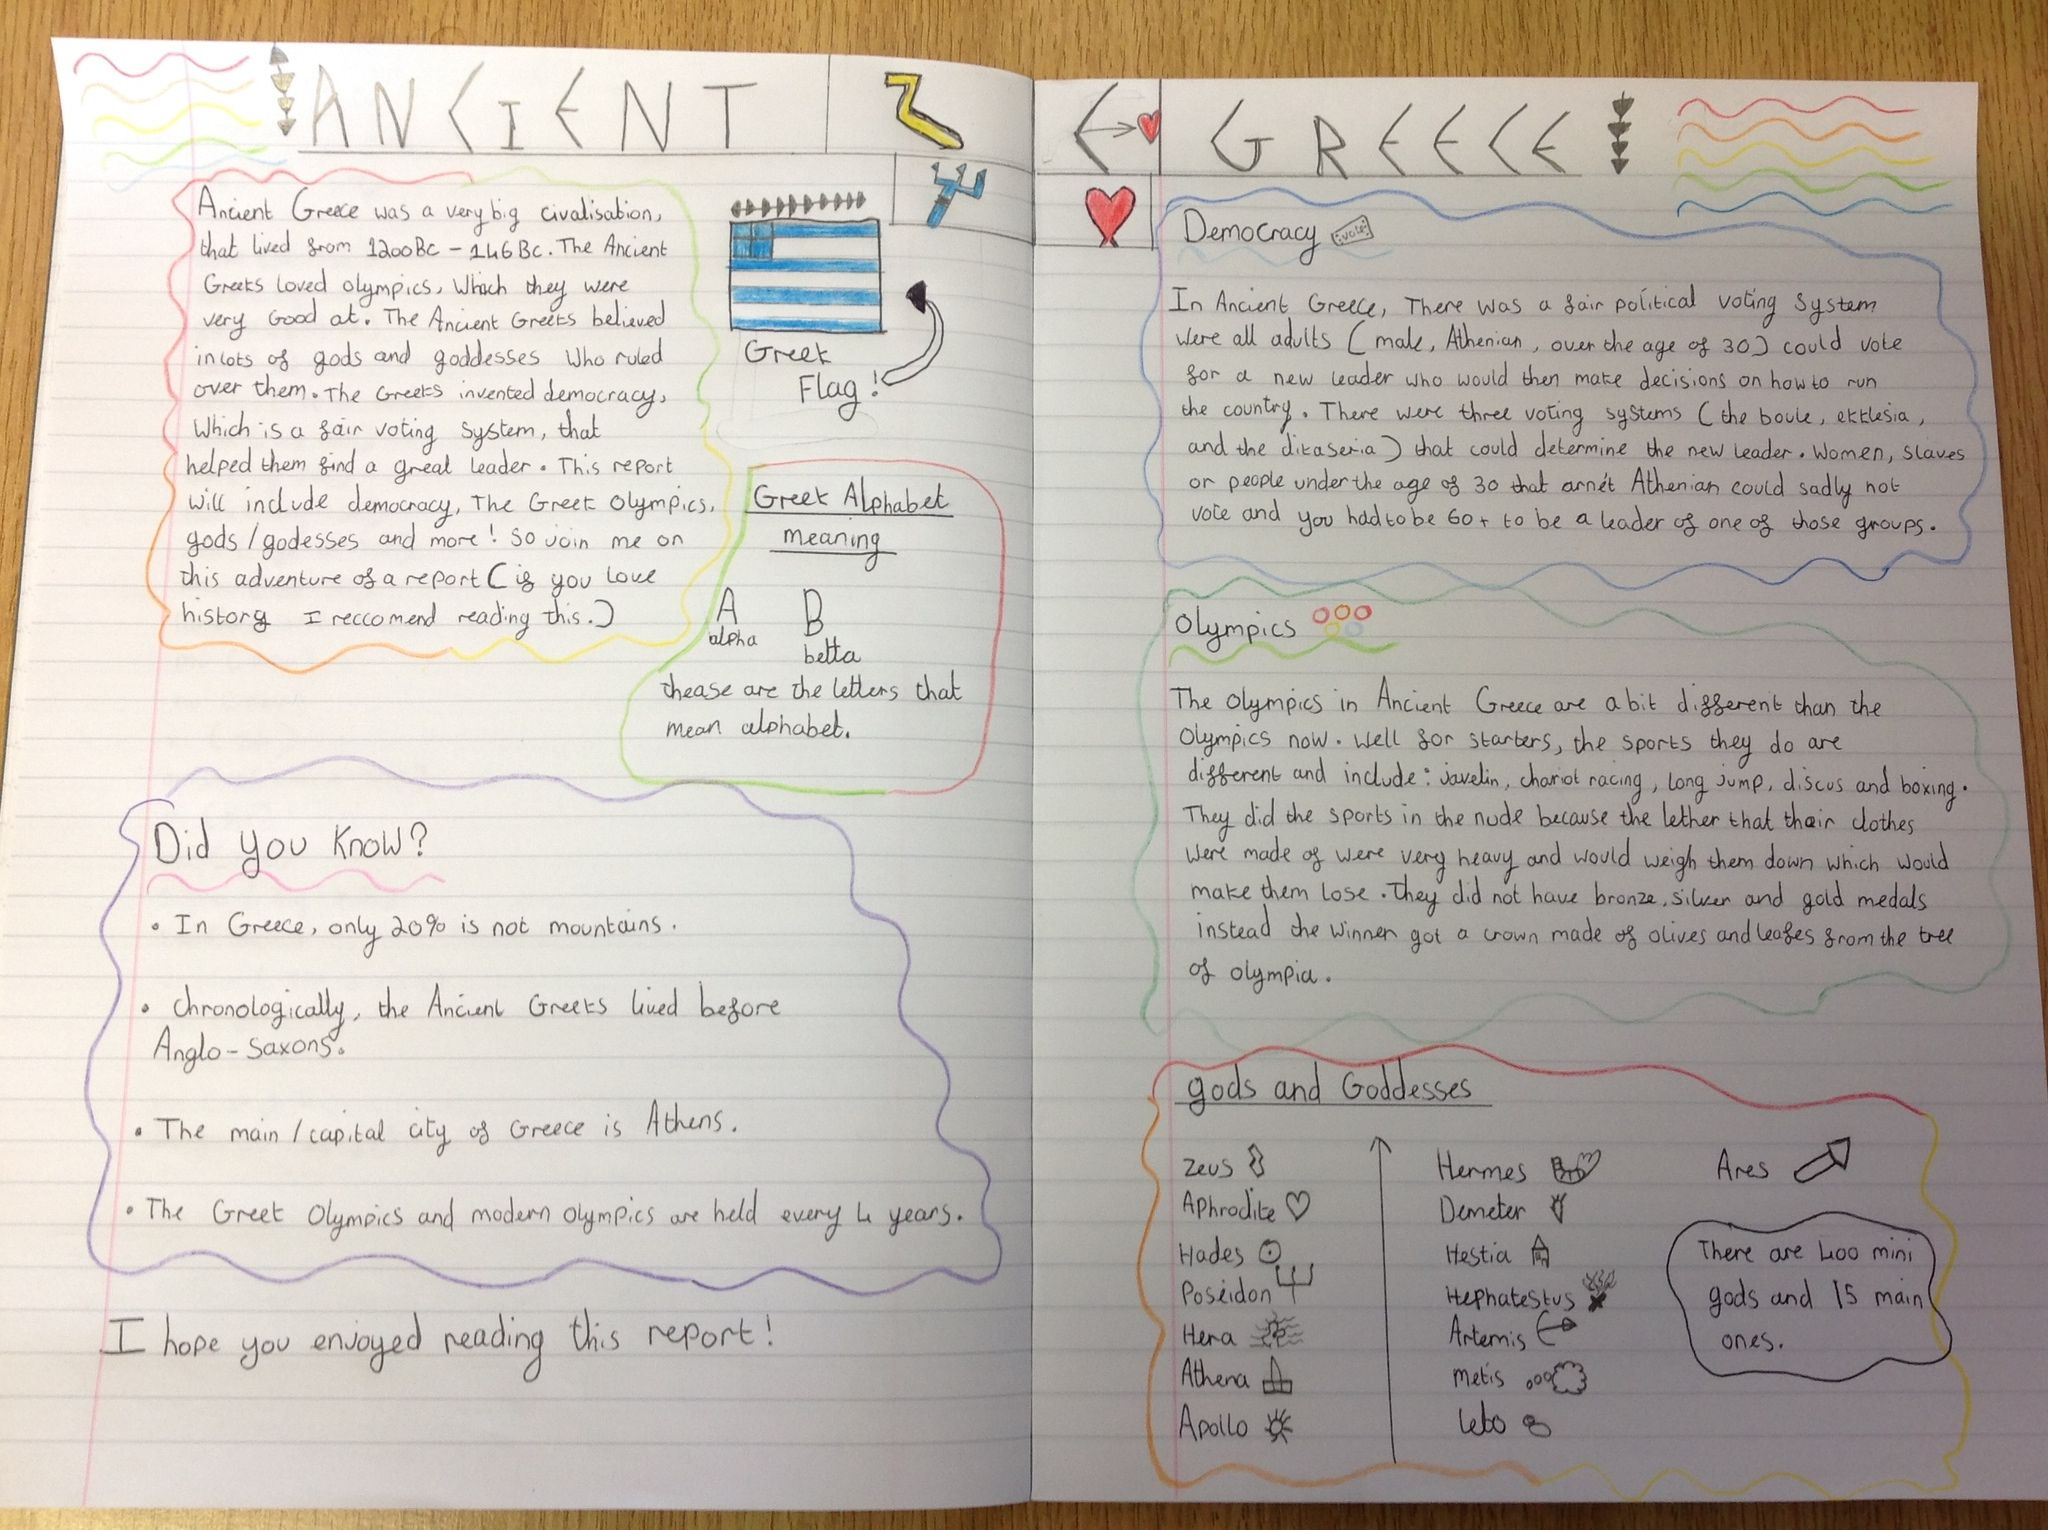 ANCIENT
Ancient Greece was a very big civalisation,
that lived from 1200BC - 146BC. The Ancient
Greeks loved olympics, Which they were
very Good at. The Ancient Greeks believed
in lots of gods and goddesses who ruled
over them. The Greeks invented democracy,
Which is a fair voting system, that
helped them find a great leader. This report
will include democracy, The Greek Olympics,
gods/godesses and more! So join me on
this adventure of a report (if you love
history I reccomend reading this.)
Greek
Flag!
Greek Alphabet
meaning
A B
alpha betta
thease are the letters that
mean alphabet.
Did you know?
• In Greece, only 20% is not mountains.
• Chronologically, the Ancient Greeks lived before
Anglo-Saxons.
• The main/capital city of Greece is Athens.
• The Greek Olympics and modern olympics are held every 4 years.
I hope you enjoyed reading this report!
GREECE
Democracy vote
In Ancient Greece, There was a fair political voting system
were all adults (male, Athenian, over the age of 30) could vote
for a new leader who would then make decisions on how to run
the country. There were three voting systems (the boule, ekklesia,
and the dikaseria) that could determine the new leader. Women, slaves
or people under the age of 30 that arn't Athenian could sadly not
vote and you had to be 60+ to be a leader of one of those groups.
Olympics
The Olympics in Ancient Greece are a bit different than the
Olympics now. Well for starters, the sports they do are
different and include: javelin, chariot racing, long jump, discus and boxing.
They did the sports in the nude because the lether that their clothes
were made of were very heavy and would weigh them down which would
make them lose. They did not have bronze, silver and gold medals
instead the winner got a crown made of olives and leafes from the tree
of olympia.
gods and Goddesses
Zeus
Aphrodite
Hades
Poseidon
Hera
Athena
Apollo
Hermes
Demeter
Hestia
Hephatestus
Artemis
metis
Leto
Ares
There are 400 mini
gods and 15 main
ones.